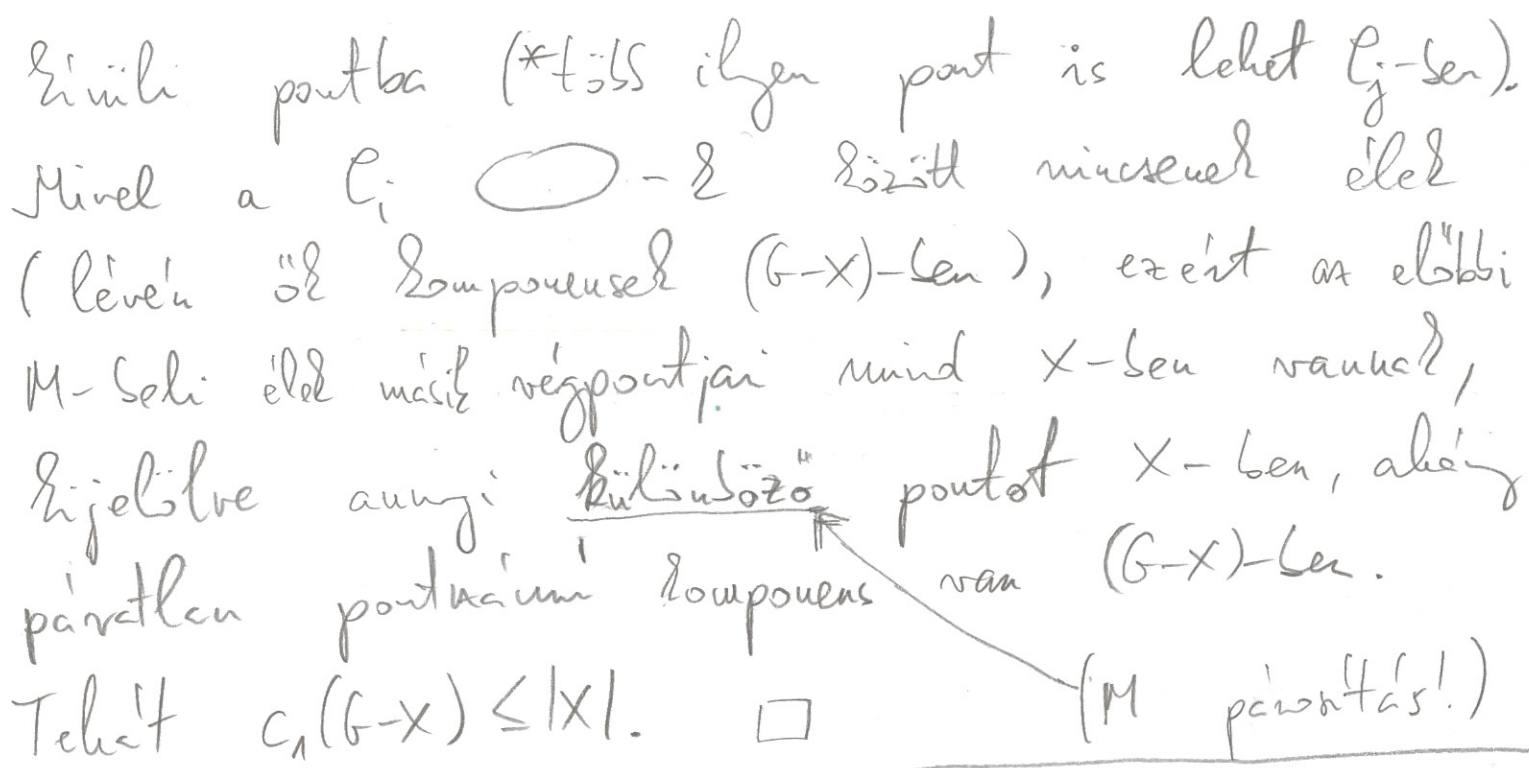 kívüli pontba (*több ilyen pont is lehet Cj-ben).
Mivel a Ci -k között nincsenek élek
(lévén ők komponensek (G-X)-ben), ezért az előbbi
M-beli élek másik végpontjai mind X-ben vannak,
kijelölve annyi különböző pontot X-ben, ahány
páratlan pontszámú komponens van (G-X)-ben.
Tehát c₁(G-X) ≤ |X|. □ (M párosítás!)